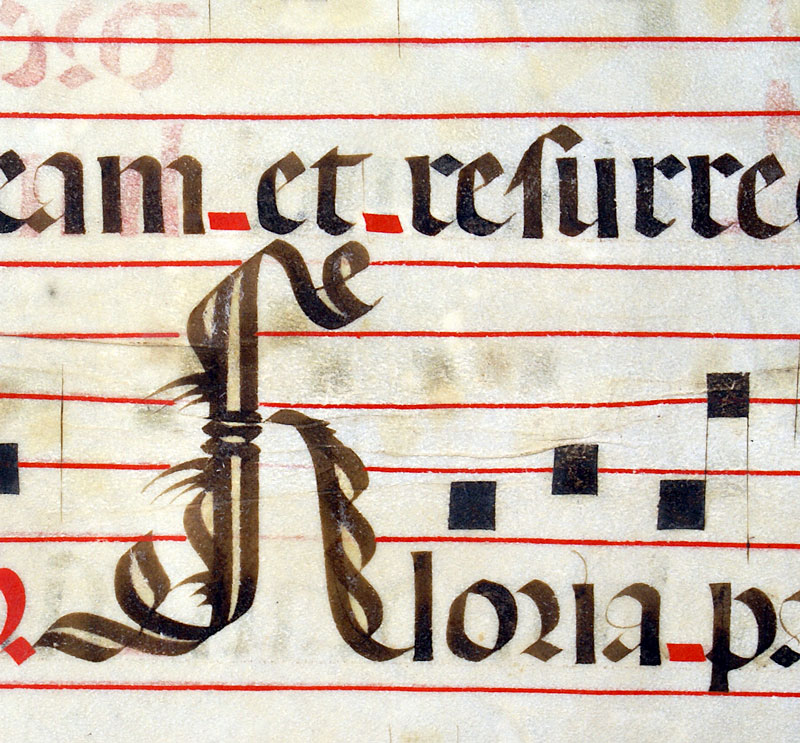 eam et reſurrec
Gloria p